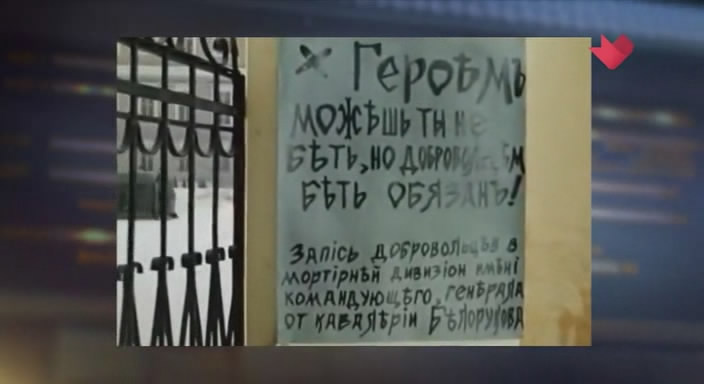 Героѣмъ
можѣшь ты не
бѣть, но добровольцѣм
бѣть обязанъ!
Запісь добровольцѣв в
мортірнѣй дивизіон имѣні
командующѣго, гѣнѣрала
от кавалѣріи Бѣлорукова